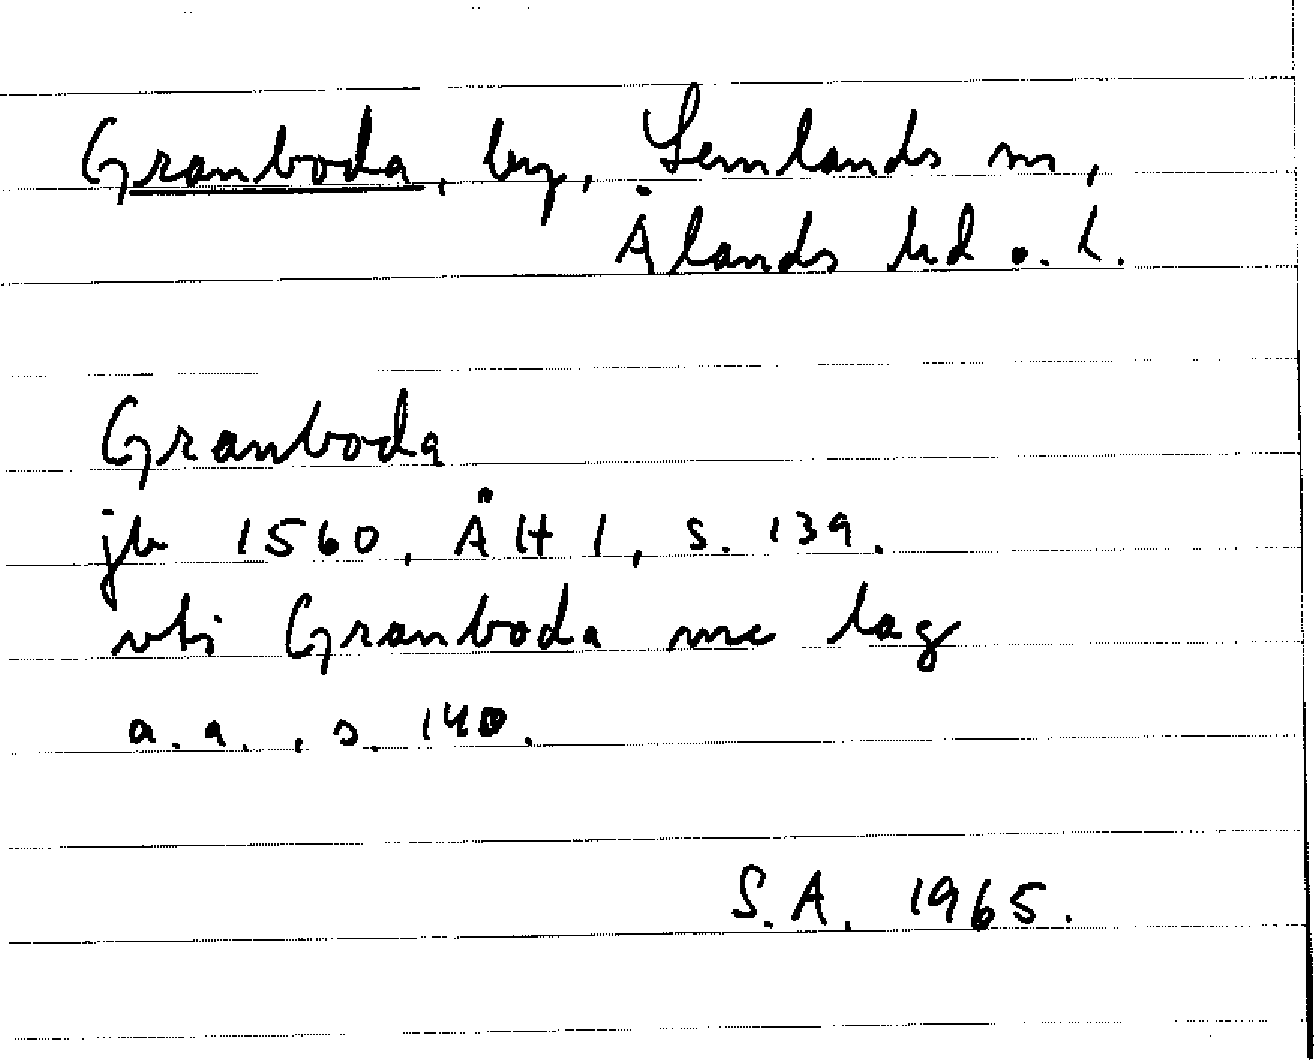 Granboda, by, Lemlands sn,
Ålands hd o. l.
Granboda
jb 1560, ÅH 1, s. 139.
vti Granboda me lag
a.a., s. 140.
S.A. 1965.